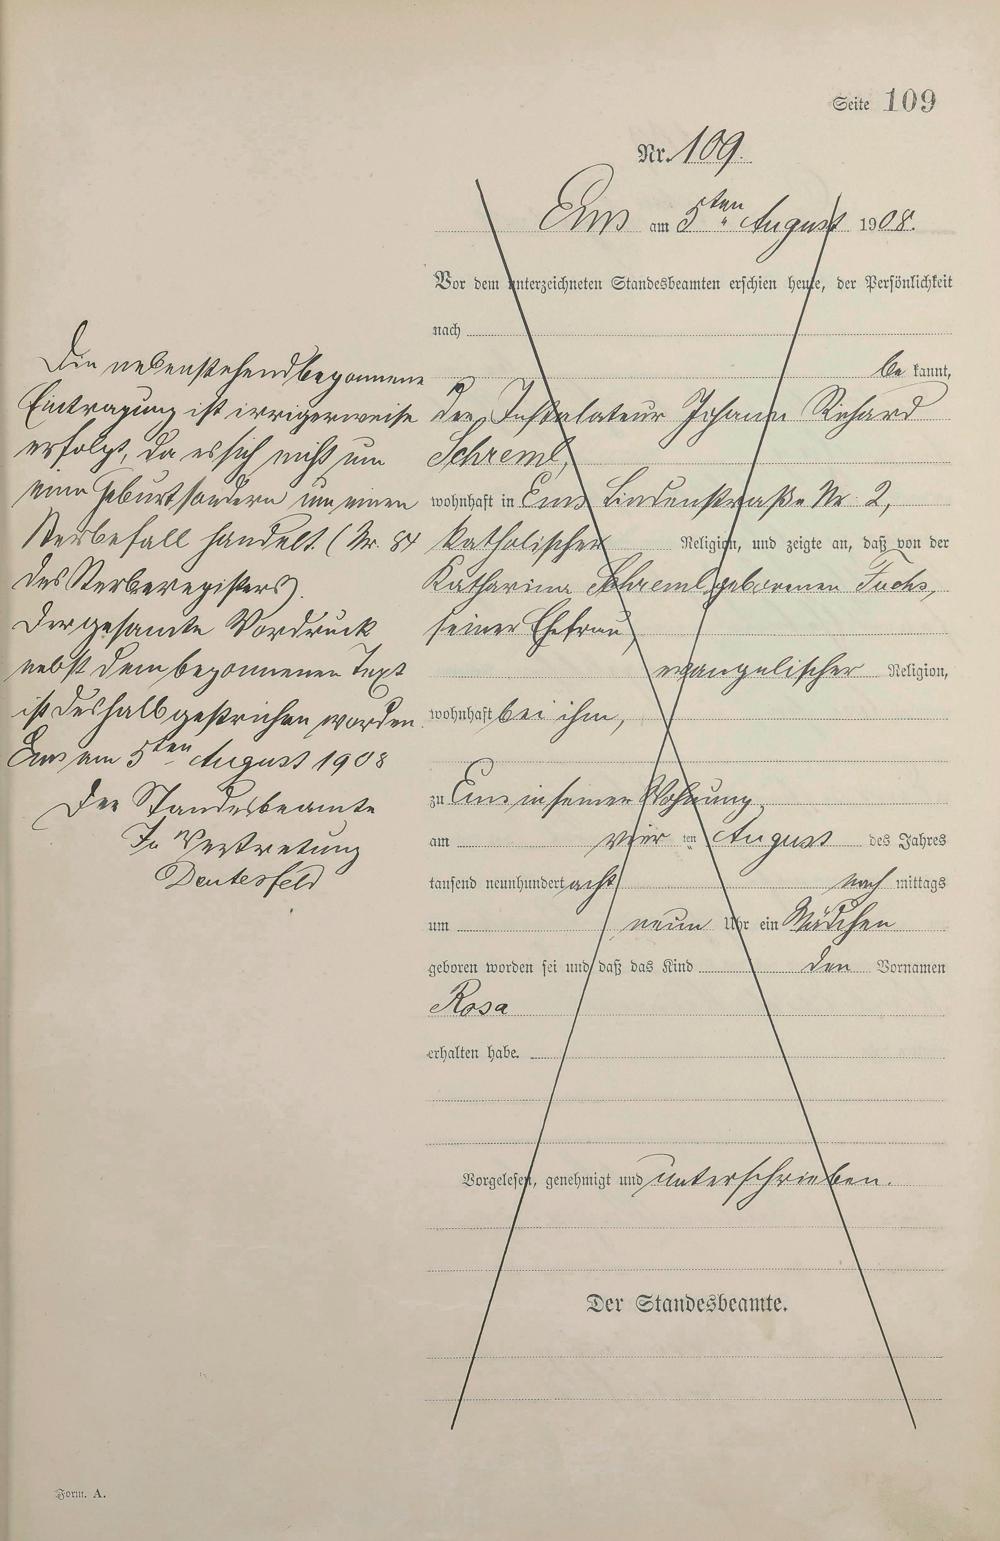 Seite 109
Nr. 109.
Ems am 5ten August 1908.
Vor dem unterzeichneten Standesbeamten erschien heute, der Persönlichkeit
nach
be kannt,
der Installateur Johann Richard
Schreml,
wohnhaft in Ems Lindenstraße Nr 2,
katholischer Religion, und zeigte an, daß von der
Katharina Schreml geborenen Fuchs,
seiner Ehefrau,
evangelischer Religion,
wohnhaft bei ihm,
zu Ems in seiner Wohnung,
am vier ten August des Jahres
tausend neunhundert acht nach mittags
um neun Uhr ein Mädchen
geboren worden sei und daß das Kind den Vornamen
Rosa
erhalten habe.
Vorgelesen, genehmigt und unterschrieben.
Der Standesbeamte.
Die nebenstehend begonnene
Eintragung ist irrigerweise
erfolgt, da es sich nicht um
eine Geburt sondern um einen
Sterbefall handelt. (Nr. 84
des Sterberegisters).
Der gesamte Vordruck
nebst dem begonnenen Text
ist deshalb gestrichen worden.
Ems am 5ten August 1908
Der Standesbeamte
In Vertretung
Deutesfeld
Form. A.